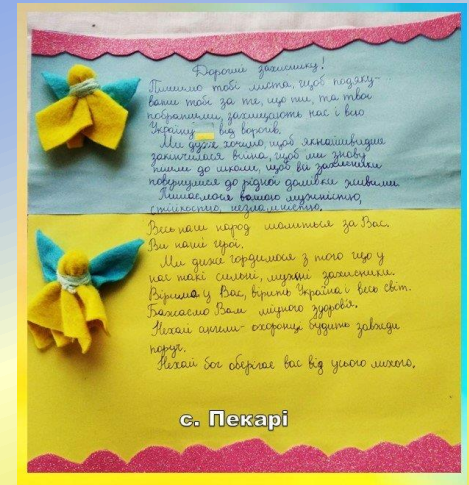 Дорогий захиснику!
Пишемо тобі листа, щоб подяку-
вати тобі за те, що ти, та твої
побратими, захищають нас і всю
Україну від ворогів.
Ми дуже хочемо, щоб якнайшвидше
закінчилася війна, щоб ми знову
пішли до школи, щоб всі захисники
повернулися до рідної домівки живими.
Пишаємося вашою мужністю,
стійкостю, незламністю.
Весь наш народ молиться за Вас.
Ви наші герої.
Ми дуже гордимося з того що у
нас такі сильні, мужні захисники.
Віримо у Вас, вірить Україна і весь світ.
Бажаємо Вам міцного здоров'я.
Нехай ангели-охоронці будуть завжди
поруч.
Нехай бог оберігає вас від усього лихого.
с. Пекарі